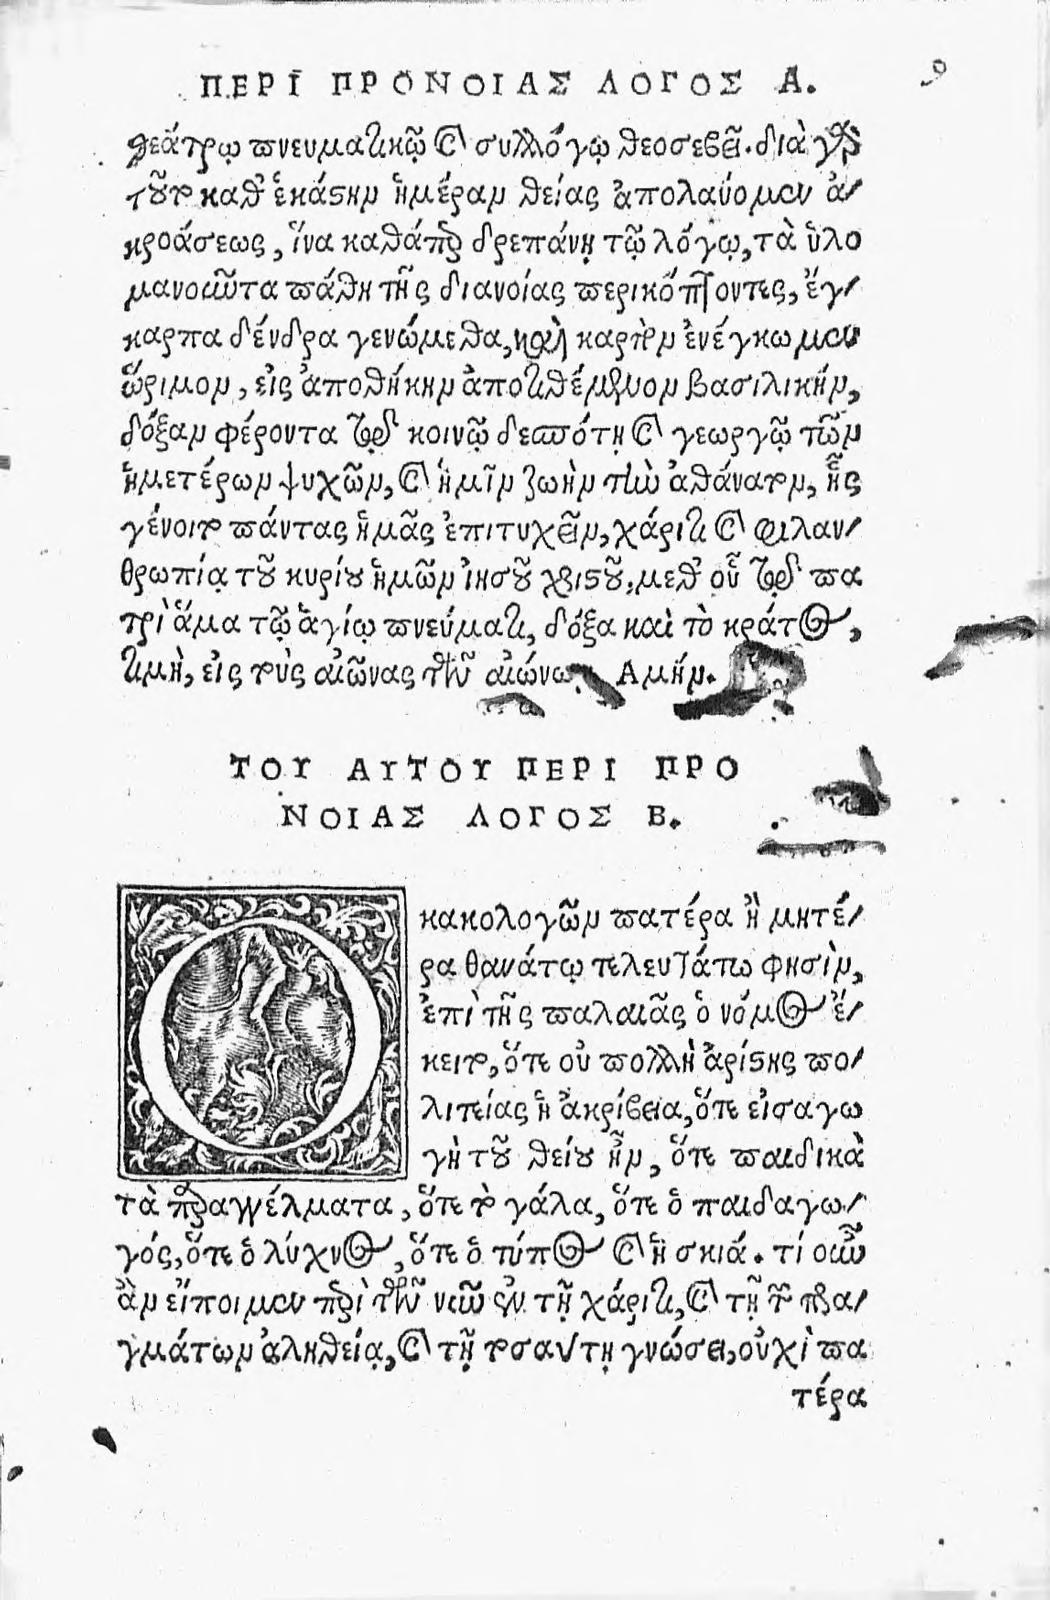 ΠΕΡΙ ΠΡΟΝΟΙΑΣ ΛΟΓΟΣ Α. 9
θεάτρῳ πνευματικῷ καὶ συλλόγῳ θεοσεβεῖ. διὰ γὰρ
τοῦτο καθ' ἑκάστην ἡμέραν θείας ἀπολαύομεν ἀ/
κροάσεως, ἵνα καθάπερ δρεπάνῃ τῷ λόγῳ, τὰ ὑλο
μανοῦντα πάθη τῆς διανοίας περικόπτοντες, ἔγ/
καρπα δένδρα γενώμεθα, καὶ καρπὸν ἐνέγκωμεν
ὥριμον, εἰς ἀποθήκην ἀποτιθέμενον βασιλικήν,
δόξαν φέροντα τῷ κοινῷ δεσπότῃ καὶ γεωργῷ τῶν
ἡμετέρων ψυχῶν, καὶ ἡμῖν ζωὴν τὴν ἀθάνατον, ἧς
γένοιτο πάντας ἡμᾶς ἐπιτυχεῖν, χάριτι καὶ φιλαν/
θρωπίᾳ τοῦ κυρίου ἡμῶν ἰησοῦ χριστοῦ, μεθ' οὗ τῷ πα
τρὶ ἅμα τῷ ἁγίῳ πνεύματι, δόξα καὶ τὸ κράτος,
τιμὴ, εἰς τοὺς αἰῶνας τῶν αἰώνων. Αμήν.
ΤΟΥ ΑΥΤΟΥ ΠΕΡΙ ΠΡΟ
ΝΟΙΑΣ ΛΟΓΟΣ Β.
Ο κακολογῶν πατέρα ἢ μητέ/
ρα θανάτῳ τελευτάτω φησὶν,
ἐπὶ τῆς παλαιᾶς ὁ νόμος ἔ/
κειτο, ὅτε οὐ πολλὴ ἀρίστης πο/
λιτείας ἡ ἀκρίβεια, ὅτε εἰσαγω
γὴ τοῦ θείου ἦν, ὅτε παιδικὰ
τὰ παραγγέλματα, ὅτε τὸ γάλα, ὅτε ὁ παιδαγω/
γός, ὅτε ὁ λύχνος, ὅτε ὁ τύπος καὶ ἡ σκιά. τί οὖν
ἂν εἴποιμεν περὶ τῶν νῦν ἐν τῇ χάριτι, καὶ τῇ τῶν πρα/
γμάτων ἀληθείᾳ, καὶ τῇ τοσαύτῃ γνώσει, οὐχὶ πα
τέρα